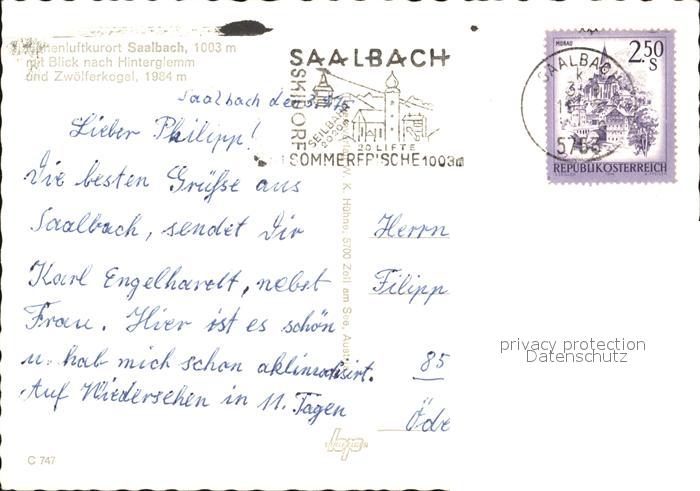 Höhenluftkurort Saalbach, 1003 m
mit Blick nach Hinterglemm
und Zwölferkogel, 1984 m
Saalbach den 3.9.75
Lieber Philipp!
Die besten Grüße aus
Saalbach, sendet Dir
Karl Engelhardt, nebst
Frau. Hier ist es schön
u. hab mich schon aklimatisirt.
Auf Wiedersehen in 11. Tagen
C 747
SAALBACH
SKIDORF
SEILBAHN
2020m
20 LIFTE
SOMMERFRISCHE 1003m
W. K. Hühne, 5700 Zell am See, Aust
SAALBACH
5753
MURAU
2.50
S
REPUBLIK ÖSTERREICH
Herrn
Filipp
85
Öde
privacy protection
Datenschutz